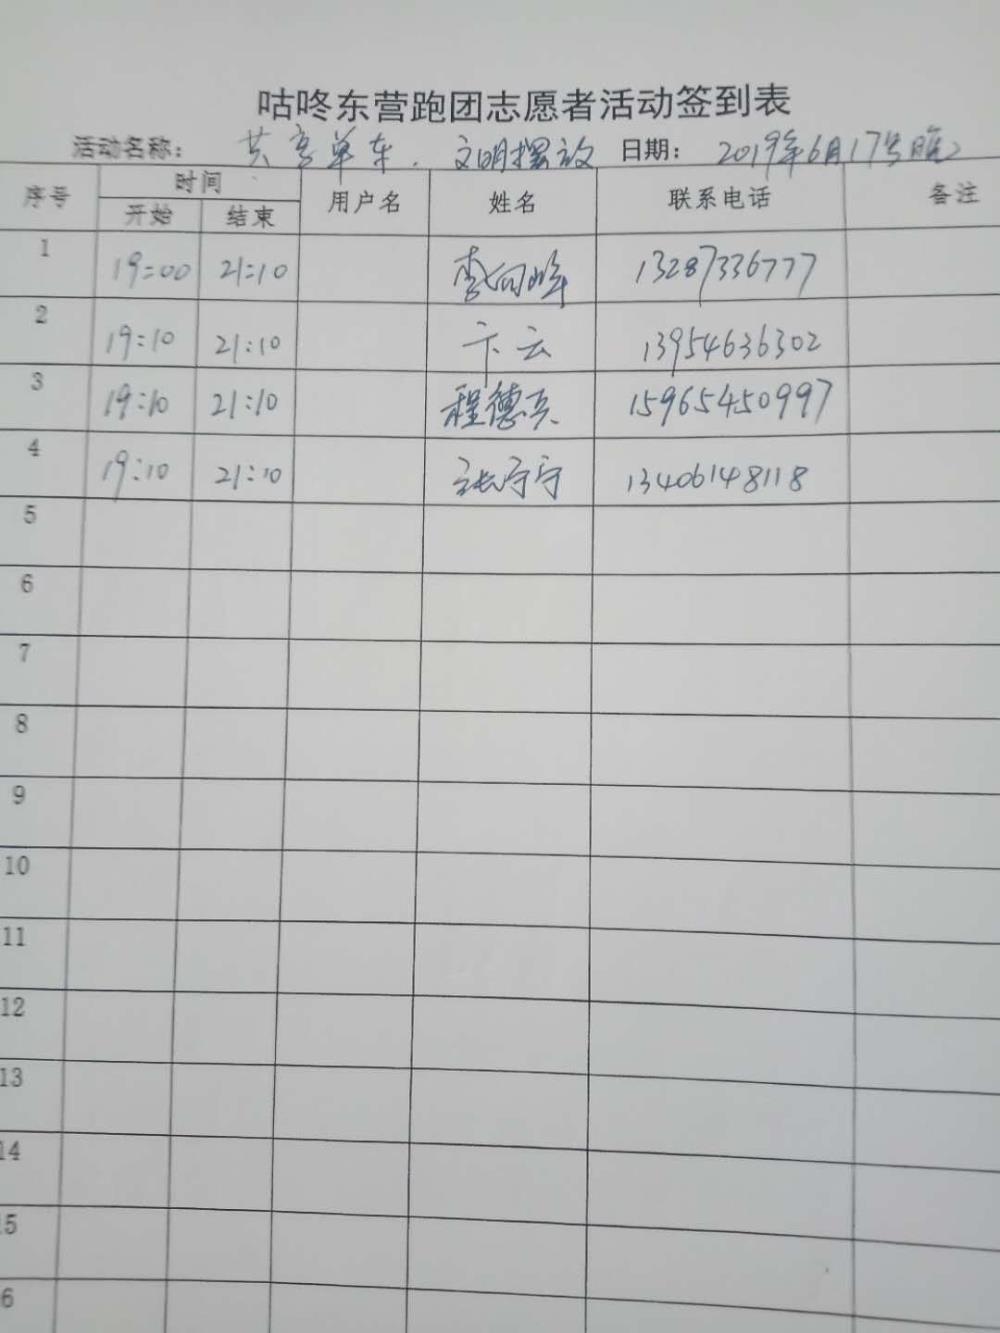 咕咚东营跑团志愿者活动签到表
活动名称： 共享单车．文明摆放 日期： 2019年6月17号晚
序号 时间 用户名 姓名 联系电话 备注
开始 结束
1 19:00 21:10 李向峰 13287336777
2 19:10 21:10 卞云 13954636302
3 19:10 21:10 程德兵 15965450997
4 19:10 21:10 张宁宁 13406148118
5
6
7
8
9
10
11
12
13
14
15
6